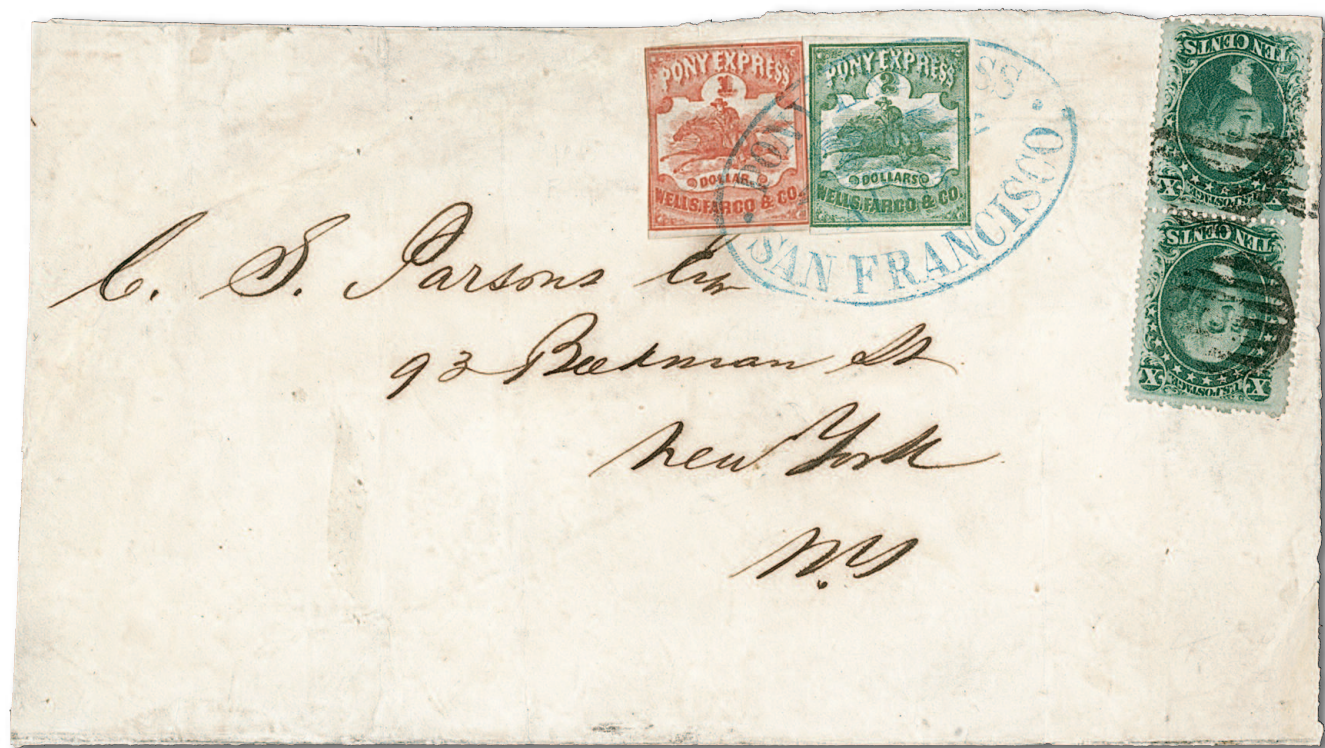 PONY EXPRESS
1
DOLLAR
WELLS, FARGO & CO.
PONY EXPRESS
2
DOLLARS
WELLS, FARGO & CO.
PONY EXPRESS
SAN FRANCISCO
TEN CENTS
X
U.S. POSTAGE
TEN CENTS
X X
U.S. POSTAGE
C. S. Parsons Esq
93 Beekman St
New York
N.Y